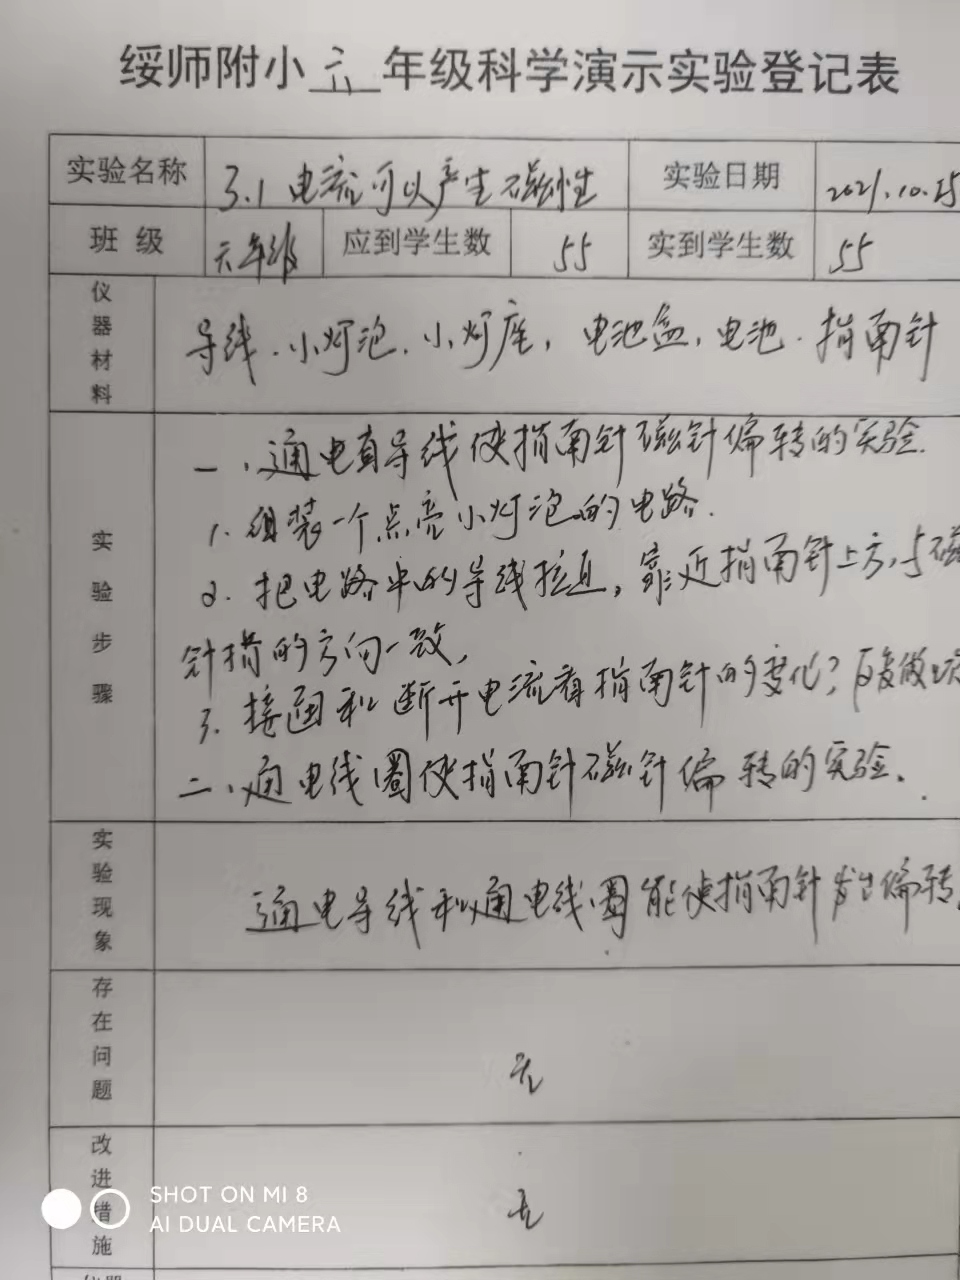 绥师附小六年级科学演示实验登记表
实验名称 3.1 电流可以产生磁性 实验日期 2021.10.25
班级 六年级 应到学生数 55 实到学生数 55
仪器材料 导线.小灯泡.小灯座,电池盒,电池.指南针
实验步骤
一、通电直导线使指南针磁针偏转的实验.
1.组装一个点亮小灯泡的电路.
2.把电路中的导线拉直,靠近指南针上方,与磁
针指的方向一致,
3.接通和断开电流看指南针的变化?反复做
二、通电线圈使指南针磁针偏转的实验.
实验现象 通电导线和通电线圈能使指南针发生偏转.
存在问题 无
改进措施 无
SHOT ON MI 8
AI DUAL CAMERA